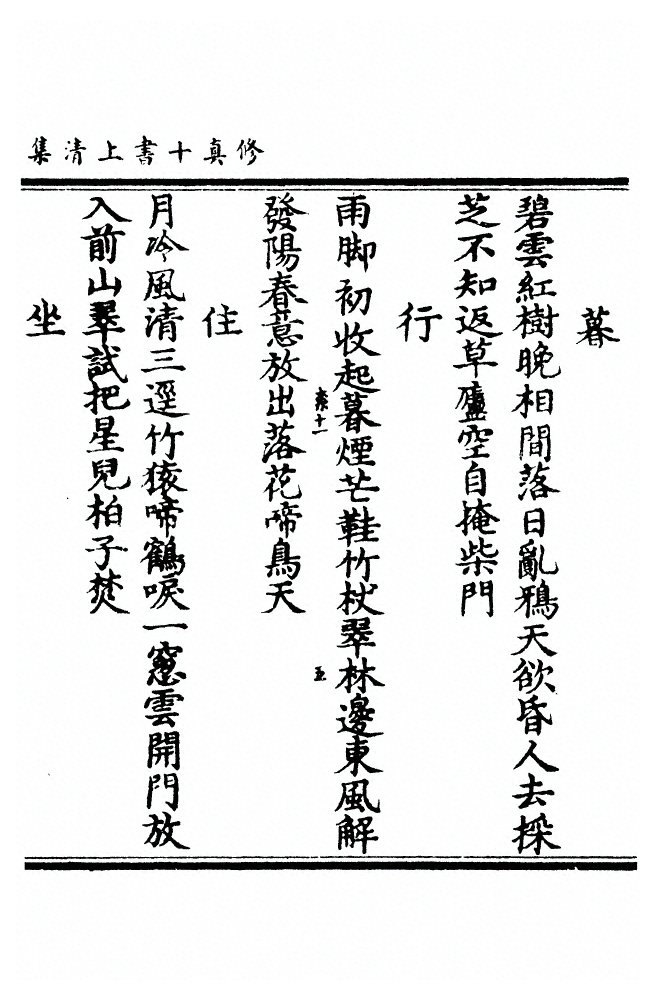 修真十書上清集
暮
碧雲紅樹晚相間落日亂鴉天欲昏人去採
芝不知返草廬空自掩柴門
行
雨脚初收起暮煙芒鞋竹杖翠林邊東風解
柰十一
五
發陽春意放出落花啼鳥天
住
月冷風清三逕竹猿啼鶴唳一窻雲開門放
入前山翠試把星兒柏子焚
坐